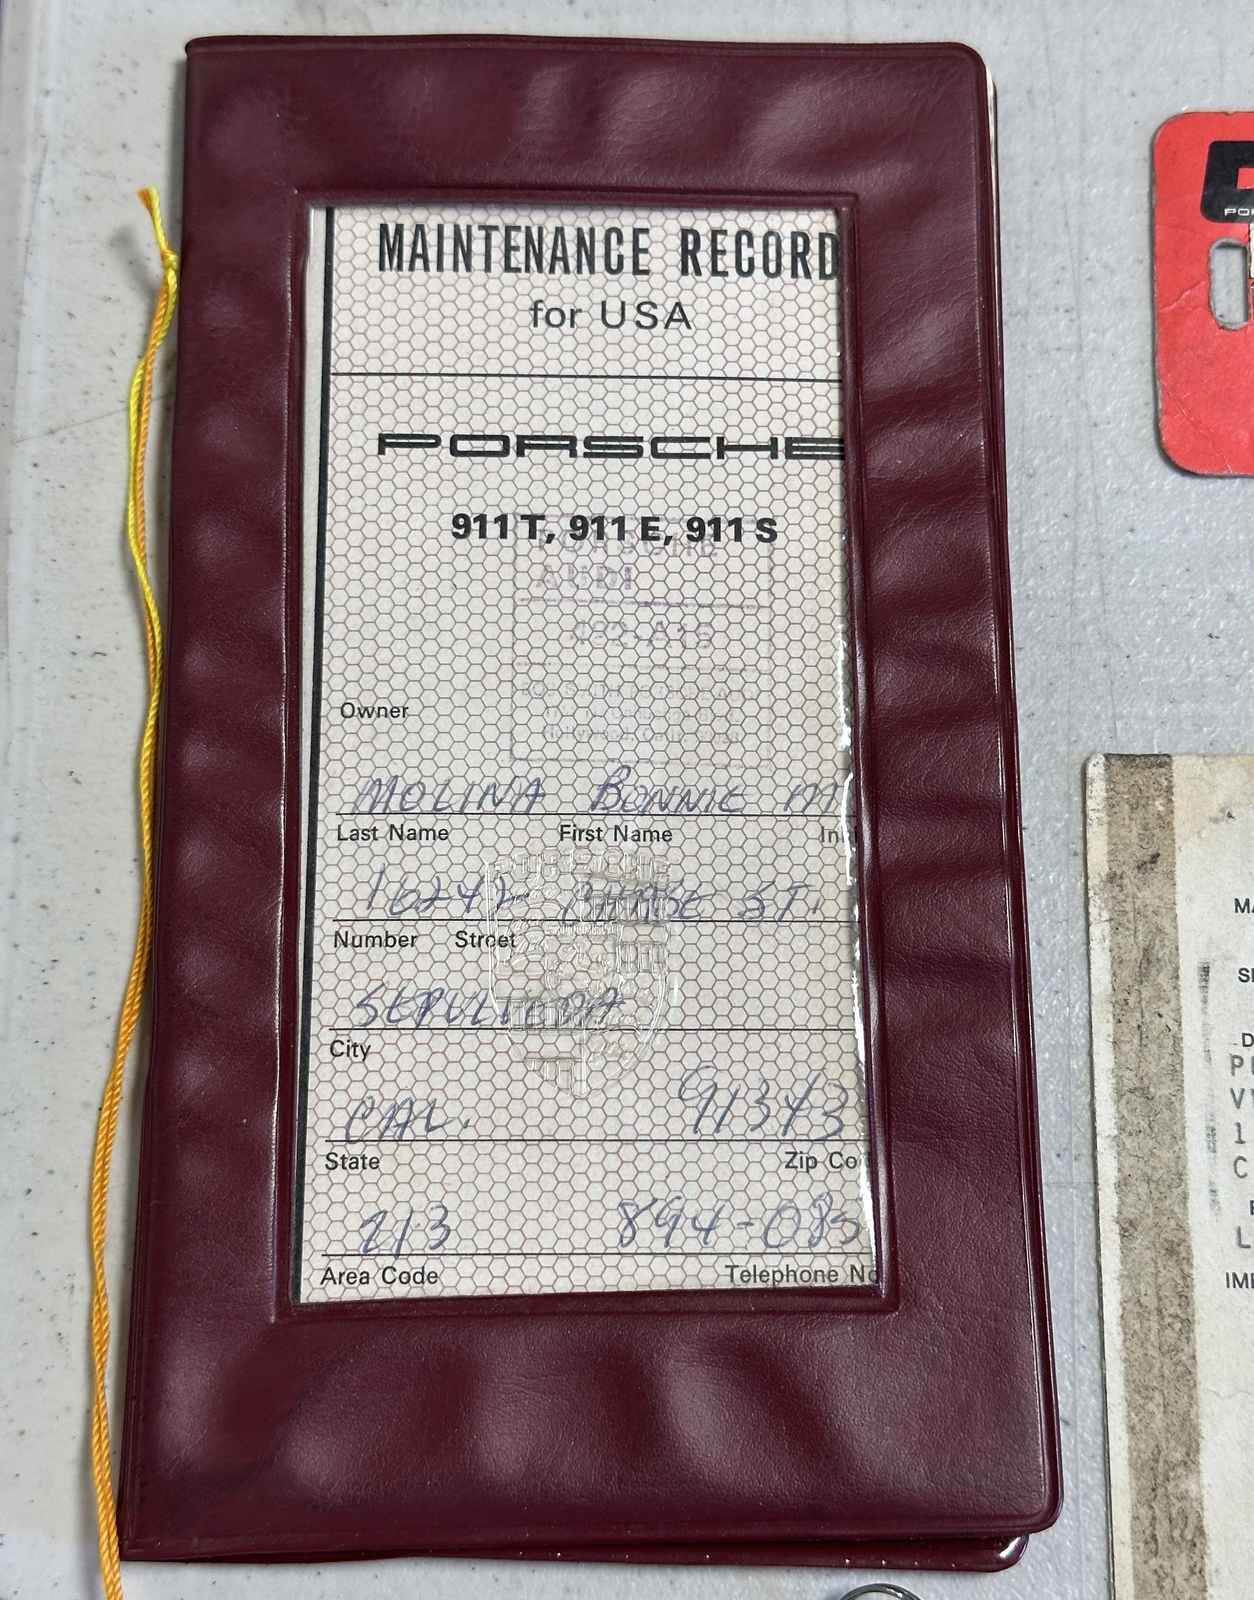 MAINTENANCE RECORD
for USA
PORSCHE
911 T, 911 E, 911 S
PORSCHE
AUDI
Owner
MOLINA BONNIE M
Last Name First Name In
10242 ST.
Number Street
SEPULVEDA
City
CAL. 91343
State Zip Co
213 894-085
Area Code Telephone No
PORSCHE